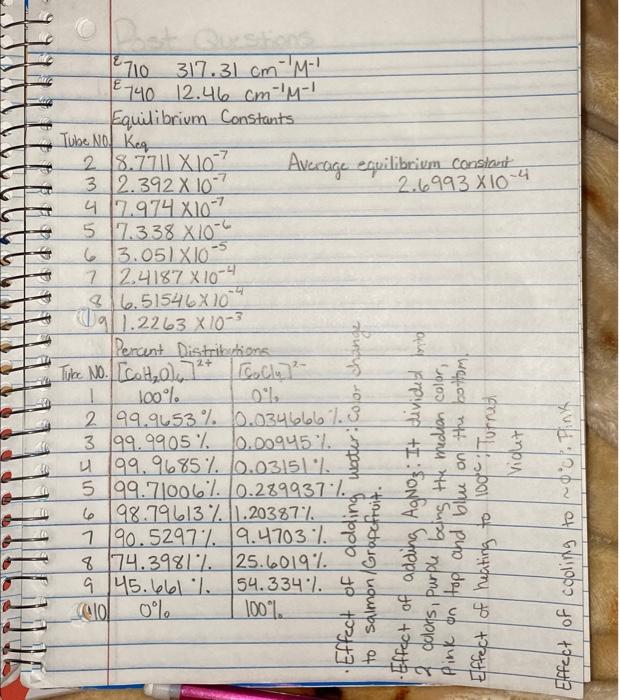 Post Questions
ε710 317.31 cm⁻¹M⁻¹
ε740 12.46 cm⁻¹M⁻¹
Equilibrium Constants
Tube NO. Keq
2 8.7711 X10⁻⁷
Average equilibrium constant
3 2.392 X10⁻⁷
2.6993 X10⁻⁴
4 7.974 X10⁻⁷
5 7.338 X10⁻⁶
6 3.051 X10⁻⁵
7 2.4187 X10⁻⁴
8 6.51546 X10⁻⁴
9 1.2263 X10⁻³
Percent Distributions
Tube NO. [CoH₂O)₆]²⁺ [CoCl₄]²⁻
1 100% 0%
2 99.9653% 0.034666%
3 99.9905% 0.00945%
4 99.9685% 0.03151%
5 99.71006% 0.289937%
6 98.79613% 1.20387%
7 90.5297% 9.4703%
8 74.3981% 25.6019%
9 45.661% 54.334%
10 0% 100%
·Effect of adding water: color change
to salmon/Grapefruit.
·Effect of adding AgNO3: It divided into
2 colors, purple being the median color,
Pink on top and blue on the bottom.
Effect of heating to 100°C: Turned
Violet
Effect of cooling to ~0°C: Pink